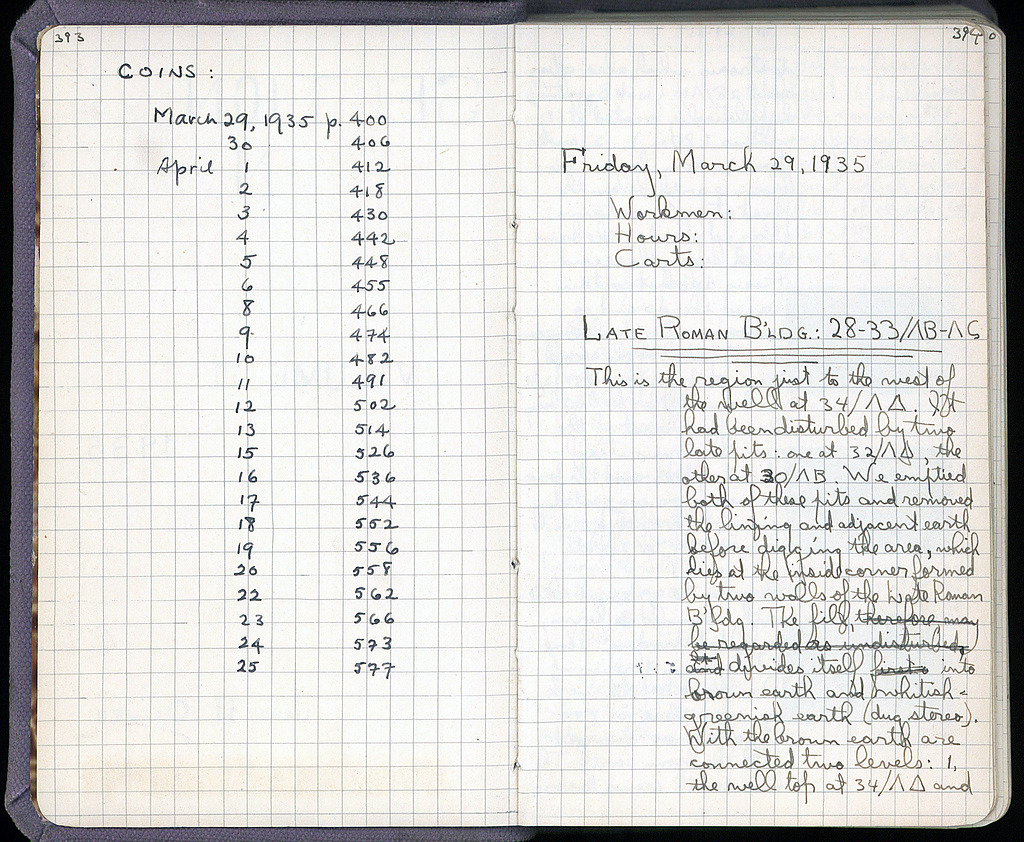 393
COINS :
March 29, 1935 p. 400
30 406
April 1 412
2 418
3 430
4 442
5 448
6 455
8 466
9 474
10 482
11 491
12 502
13 514
15 526
16 536
17 544
18 552
19 556
20 558
22 562
23 566
24 573
25 577
394
Friday, March 29, 1935
Workmen:
Hours:
Carts:
LATE ROMAN B'LDG.: 28-33/ΛB-ΛS
This is the region just to the west of
the well at 34/ΛΔ. It
had been disturbed by two
late pits: one at 32/ΛΔ, the
other at 30/ΛB. We emptied
both of these pits and removed
the lining and adjacent earth
before digging the area, which
lies at the inside corner formed
by two walls of the Late Roman
B'ldg. The fill therefore may
be regarded as undisturbed,
and divides itself first into
brown earth and whitish-
greenish earth (dug stereo).
With the brown earth are
connected two levels: 1,
the well top at 34/ΛΔ and